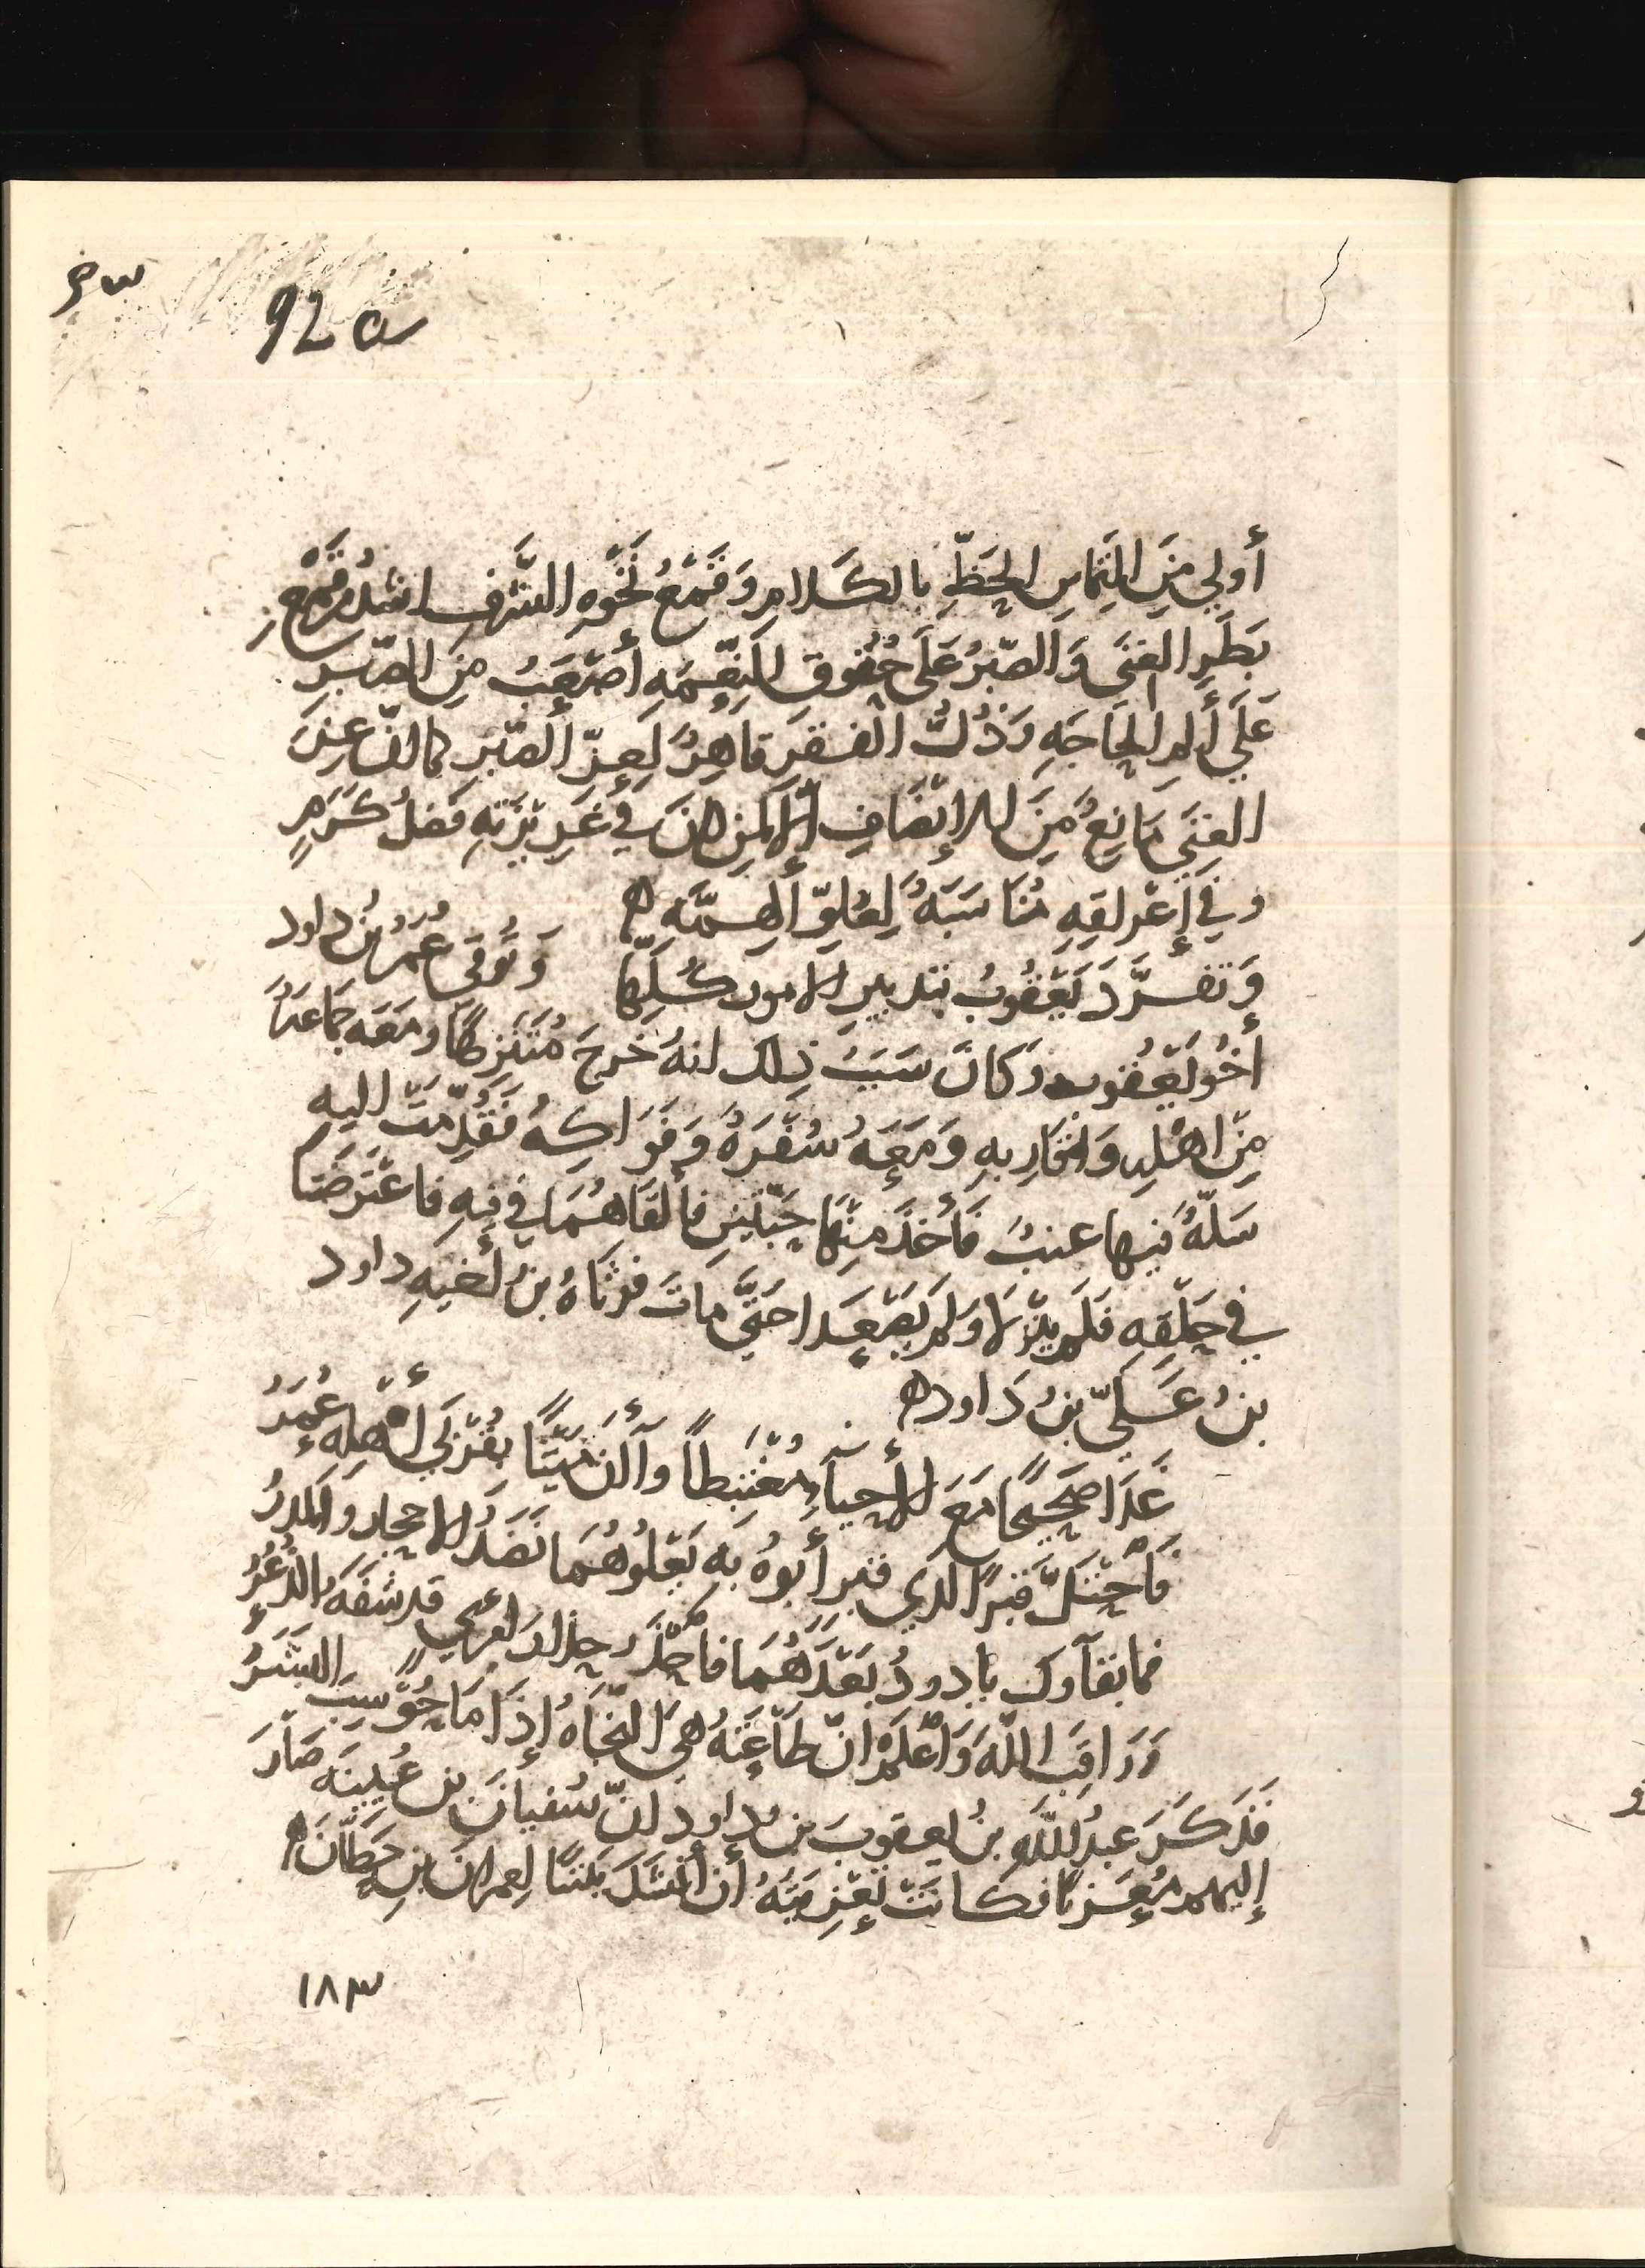 92 a
أَولي مِنَ التِمَاسِ الحَظِّ بالكَلامِ وَقَمْعُ نَخْوَةِ الشَّرَفِ اشدُّ مِنْ قَمْعِ
بَطَرِ الغِنَي وَالصّبْرُ عَلَى حُقُوقِ النِعْمَهِ أَصْعَبُ مِنَ الصّبْرِ
عَلَي أَلَمِ الحَاجَهِ وَذُلُّ الفَقرِ قاهِرٌ لِعِزّ الصّبْرِ كما انّ عِزّ
الغِنَي مَانِعٌ مِنَ الإنْصَافِ إلّا لمن كانَ في غَرِيْزَتِهِ فَضلُ كَرَمٍ
وفي أَعْرَاقِهِ مُنَاسَبَهٌ لِعُلِوّ الهِمَّه ه
وَتفرَّدَ يَعْقُوبُ بتدبيرِ الامورِ كُلِّهَا وَتُوُفّيَ عُمَرُ بنُ داود
أخُو يَعقُوب وَكانَ سَبَبُ ذلك انهُ خَرجَ مُتَنزِهًا ومَعَه جَمَاعَةٌ
مِنَ اهْلِهِ وَاقَارِبهِ وَمَعَهُ سُفْرَةٌ وَفَوَاكِهُ فَقُدِّمَتْ اليهِ
سَلّةٌ فيها عنبٌ فَأَخَذَ مِنْهَا حَبّتَينِ فَأَلقَاهُمَا في فيهِ فاعْتَرَضَتا
في حَلْقِهِ فَلَم يَنْزِلَا وَلم يَصْعَدا حَتَّى مات فرَثَاهُ بنُ أخيهِ داود
بنُ عَليّ بنُ دَاود ه
غَدَا صَحِيْحًا مَعَ الأحياءِ مُغْتَبِطاً وَالآنَ مَيّتًا بُعْزَي أَهْلِهِ عُمَرُ
فَاحْتَلّ قبرًا الذي قبر أبوهُ به يَعْلُوهُمَا نَضَدُ الاحجارِ وَالمَدَرُ
فما بقآؤك يا داودُ بَعْدَهُمَا فاحْذَر حِذارَ امرئٍ قد شفّهُ الذُّعُرُ
وَرَاقِبِ اللهَ وَاعْلَمْ انّ طَاْعَتَهُ هيَ النّجَاةُ إذَا مَا حُوْسِبَ البَشَرُ
فَذكَرَ عبدُ اللَّهِ بنُ يعقوبَ بنِ داود انّ سُفيانَ بن عُيينَه صَارَ
إليهم مُعَزيًا فكانَتْ تَعْزِيَتُهُ أن أنْشَدَ بَيْتًا لِعِمرانَ بنِ حِطّانَ ه
١٨٣